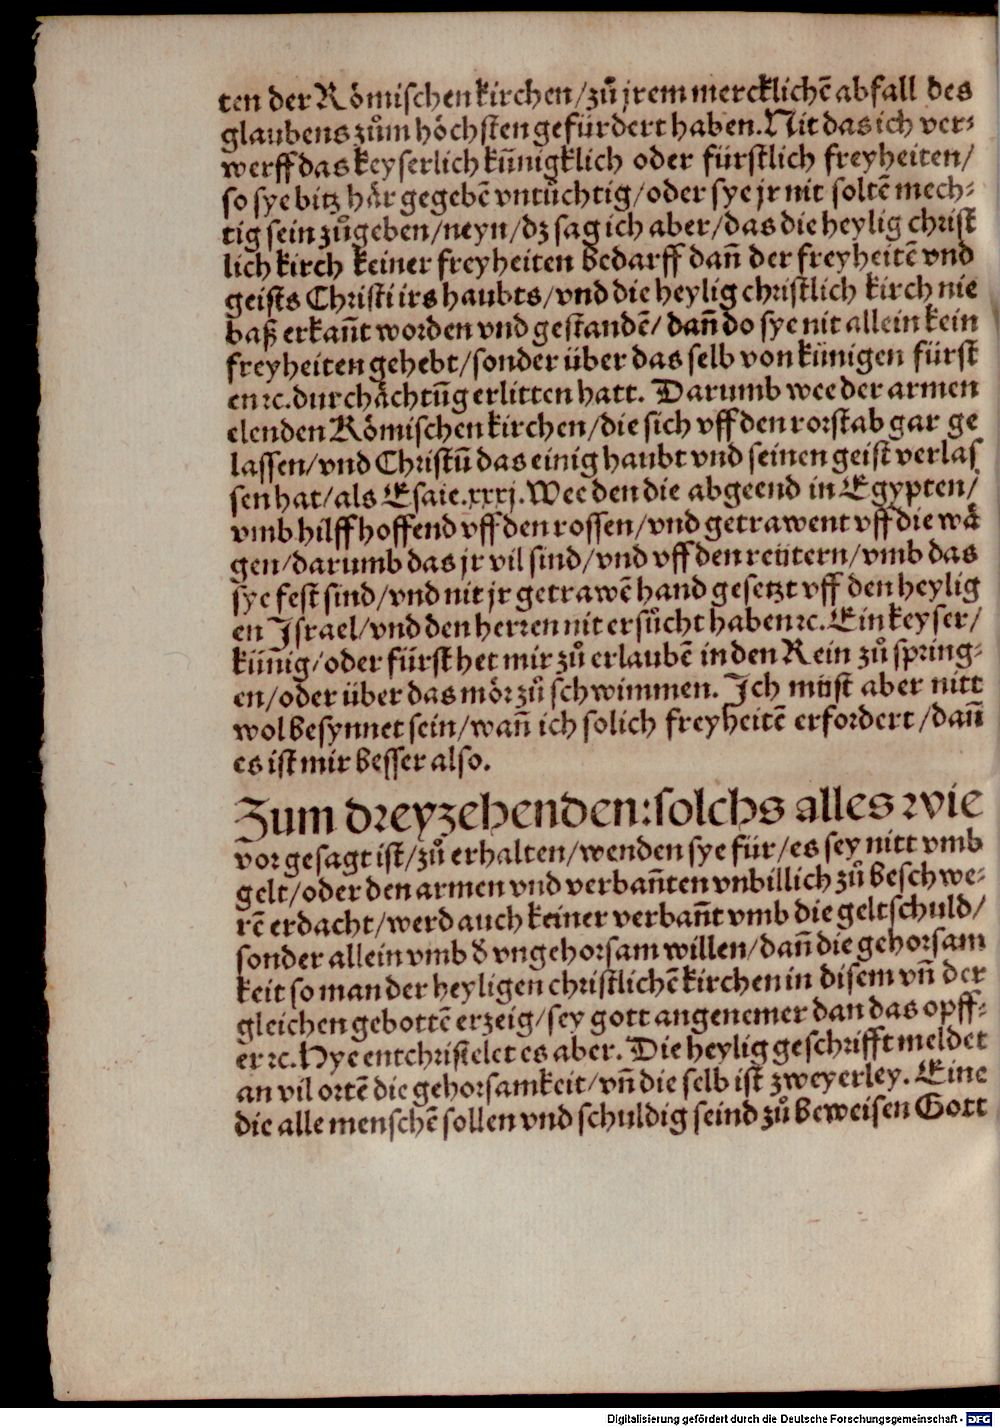 ten der Römischen kirchen/zů jrem mercklichē abfall des
glaubens zům höchsten gefürdert haben. Nit das ich ver⸗
werff das keyserlich kün̄igklich oder fürstlich freyheiten/
so sye bitz här gegebē vntüchtig/oder sye jr nit soltē mech⸗
tig sein zůgeben/neyn/dz sag ich aber/das die heylig christ
lich kirch keiner freyheiten bedarff dañ der freyheitē vnd
geists Christi irs haubts/vnd die heylig christlich kirch nie
baß erkañt worden vnd gestandē/ dañ do sye nit allein kein
freyheiten gehebt/sonder über das selb von künigen fürst
en ⁊c. durchächtūg erlitten hatt. Darumb wee der armen
elenden Römischen kirchen/die sich vff den rorstab gar ge
lassen/vnd Christū das einig haubt vnd seinen geist verlas
sen hat/als Esaie.xxxj. Wee den die abgeend in Egypten/
vmb hilff hoffend vff den rossen/vnd getrawent vff die wä
gen/darumb das jr vil sind/vnd vff den reütern/vmb das
sye fest sind/vnd nit jr getrawē hand gesetzt vff den heylig
en Israel/vnd den herren nit ersůcht haben ⁊c. Ein keyser/
kün̄ig/oder fürst het mir zů erlaubē in den Rein zů spring⸗
en/oder über das mör zů schwimmen. Ich müst aber nitt
wol besynnet sein/wañ ich solich freyheitē erfordert/dañ
es ist mir besser also.
Zum dreyzehenden: solchs alles wie
vor gesagt ist/zů erhalten/wenden sye für/es sey nitt vmb
gelt/oder den armen vnd verbañten vnbillich zů beschwe⸗
rē erdacht/werd auch keiner verbañt vmb die geltschuld/
sonder allein vmb đ vngehorsam willen/dañ die gehorsam
keit so man der heyligen christlichē kirchen in disem vñ der
gleichen gebottē erzeig/sey gott angenemer dan das opff⸗
er ⁊c. Hye entchristelet es aber. Die heylig geschrifft meldet
an vil ortē die gehorsamkeit/vñ die selb ist zweyerley. Eine
die alle menschē sollen vnd schuldig seind zů beweisen Gott
Digitalisierung gefördert durch die Deutsche Forschungsgemeinschaft - DFG